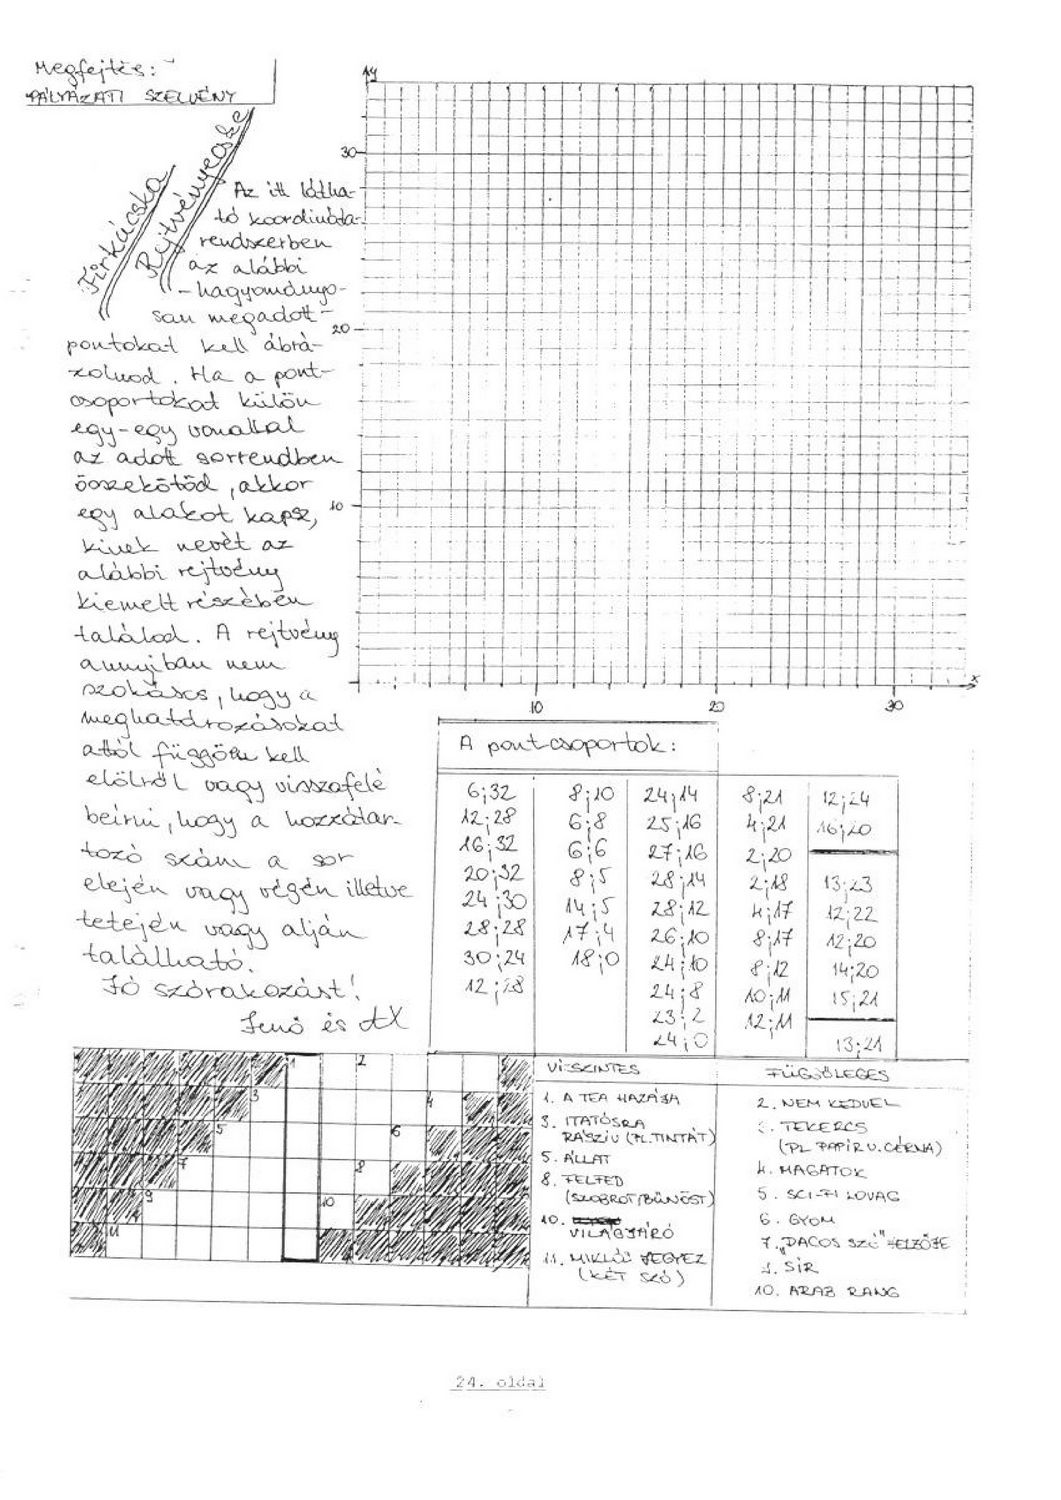 Megfejtés:
PÁLYÁZATI SZELVÉNY
Firkácska
Rejtvényecske
Az itt látha-
tó koordináta-
rendszerben
az alábbi
- hagyományo-
san megadott -
pontokat kell ábrá-
zolnod. Ha a pont-
csoportokat külön
egy-egy vonallal
az adott sorrendben
összekötöd, akkor
egy alakot kapsz,
kinek nevét az
alábbi rejtvény
kiemelt részében
találod. A rejtvény
annyiban nem
szokásos, hogy a
meghatározásokat
attól függően kell
elölről vagy visszafelé
beírni, hogy a hozzátar-
tozó szám a sor
elején vagy végén illetve
tetején vagy alján
található.
Jó szórakozást!
Jenő és AX
y
30
20
10
10
20
30
x
A pont-csoportok:
6;32 8;10 24;14 8;21 12;24
12;28 6;8 25;16 4;21 16;20
16;32 6;6 27;16 2;20
20;32 8;5 28;14 2;18 13;23
24;30 14;5 28;12 4;17 12;22
28;28 17;4 26;10 8;17 12;20
30;24 18;0 24;10 8;12 14;20
12;28 24;8 10;11 15;21
23;2 12;11
24;0 13;21
1 2
3 4
5 6
7 8
9 10
11
VÍZSZINTES
1. A TEA HAZÁJA
3. ITATÓSRA
RÁSZÍV (PL. TINTÁT)
5. ÁLLAT
8. FELFED
(SZOBROT/BŰNÖST)
10. VILÁGJÁRÓ
11. MIKLÓS JEGYEZ
(KÉT SZÓ)
FÜGGŐLEGES
2. NEM KEDVEL
TEKERCS
(PL PAPÍR V. CÉRNA)
4. MAGATOK
5. SCI-FI LOVAG
6. GYOM
7. "DACOS SZÓ" JELZŐJE
9. SÍR
10. ARAB RANG
24. oldal